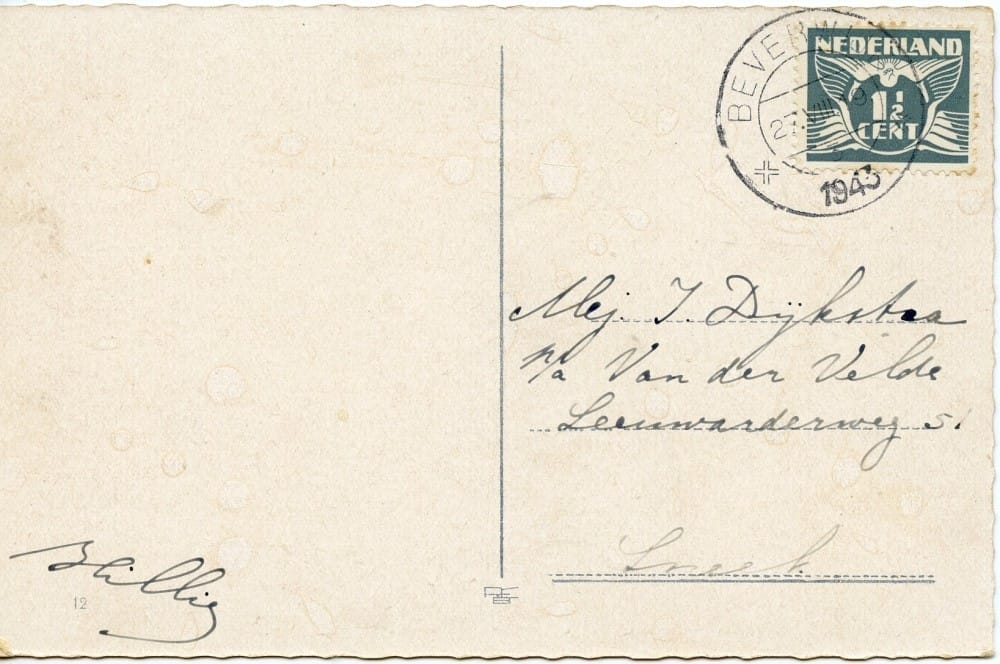 BEVERWIJK
27.VIII.19
1943
NEDERLAND
1½
CENT
Mej. J. Dijkstra
p/a Van der Velde
Leeuwarderweg 51
Sneek
12